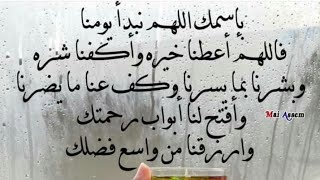 باسمك اللهم نبدأ يومنا
فاللهم أعطنا خيره وأكفنا شره
وبشرنا بما يسرنا وكف عنا ما يضرنا
وأفتح لنا أبواب رحمتك
وارزقنا من واسع فضلك
Mai Assem